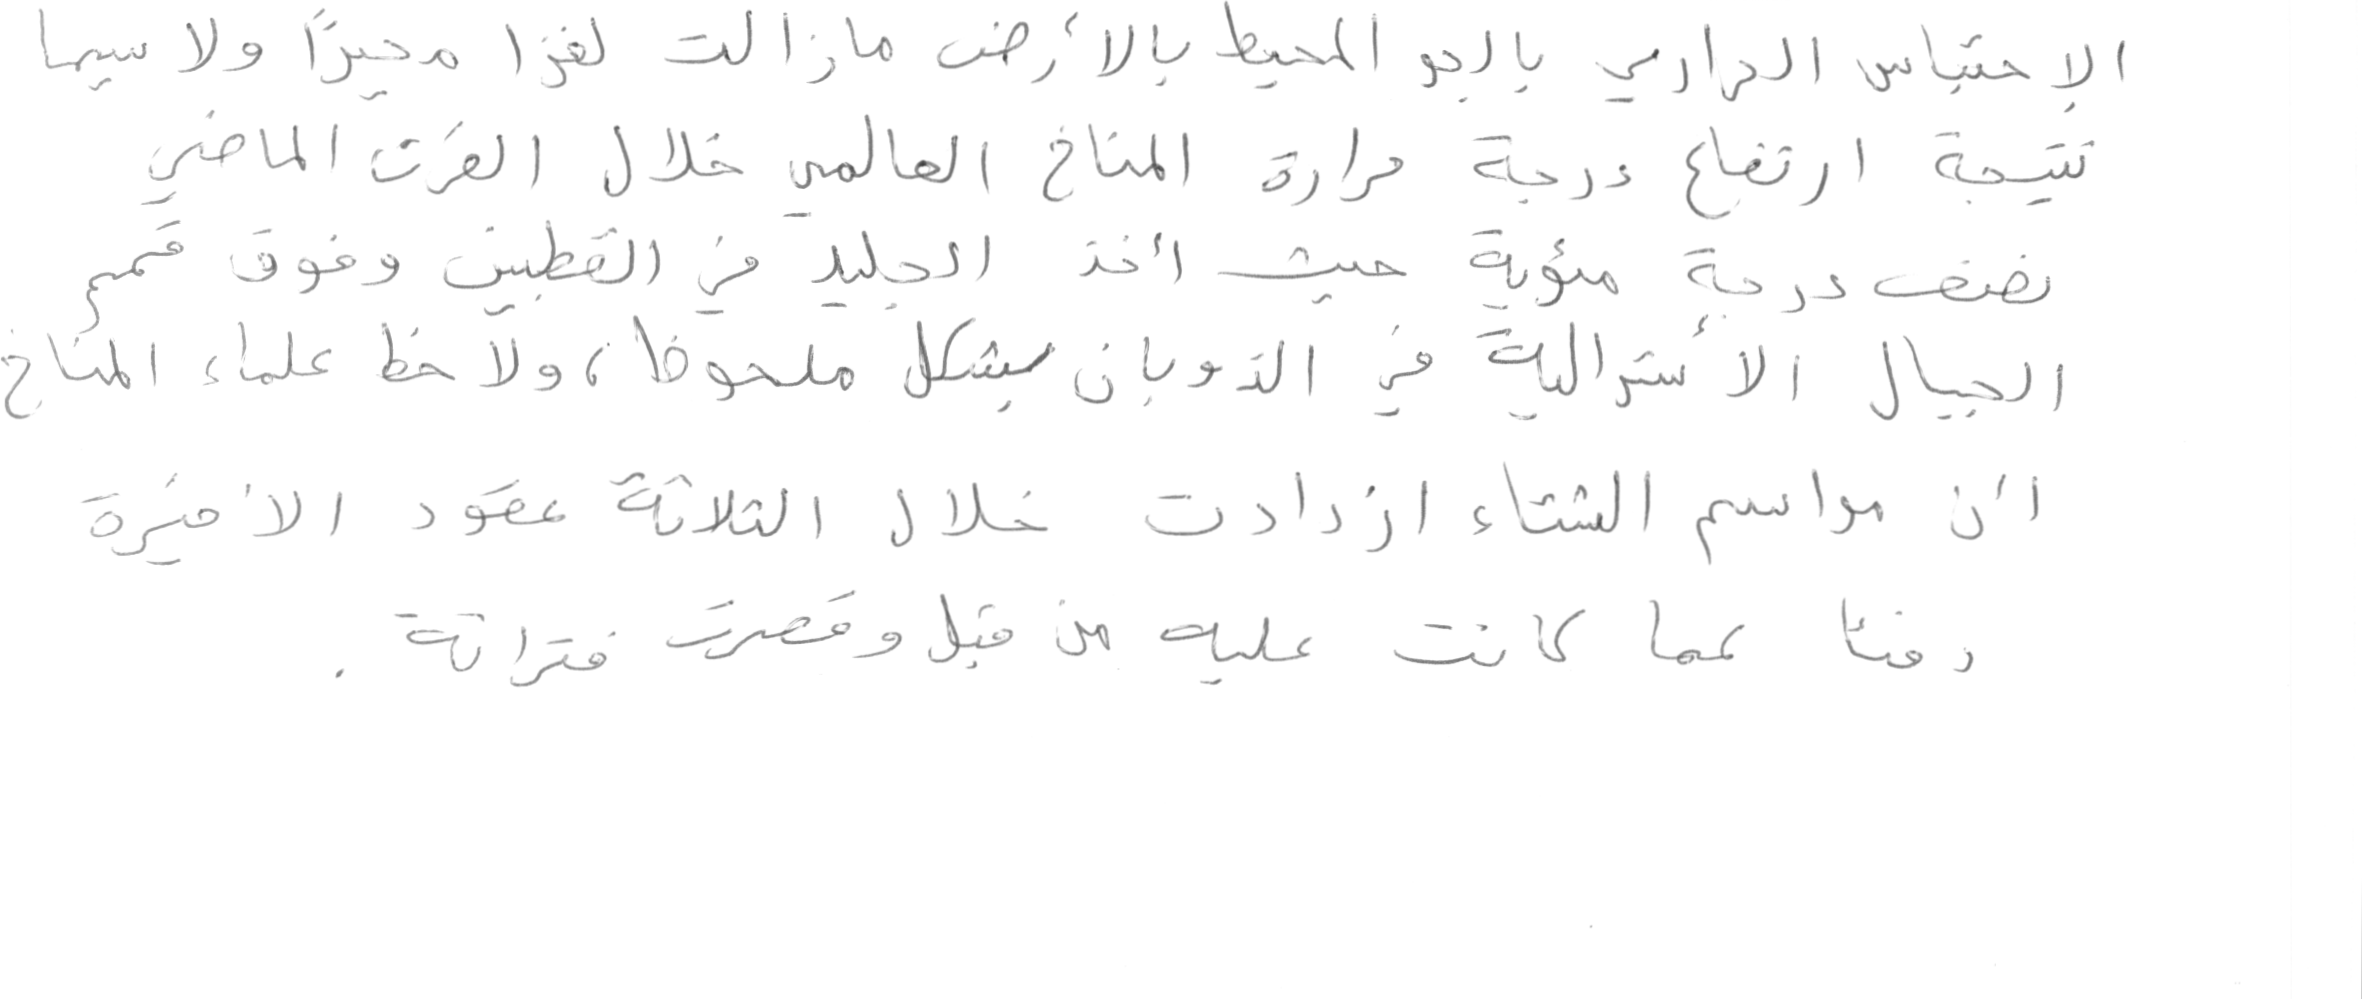 الإحتباس الحراري بالجو المحيط بالأرض مازالت لغزا محيرًا ولاسيما
نتيجة ارتفاع درجة حرارة المناخ العالمي خلال القرن الماضي
نصف درجة مئوية حيث أخذ الجليد في القطبين وفوق قمم
الجبال الأسترالية في الذوبان بشكل ملحوظا، ولاحظ علماء المناخ
أن مواسم الشتاء ازدادت خلال الثلاثة عقود الأخيرة
دفئا عما كانت عليه من قبل وقصرت فتراتة .